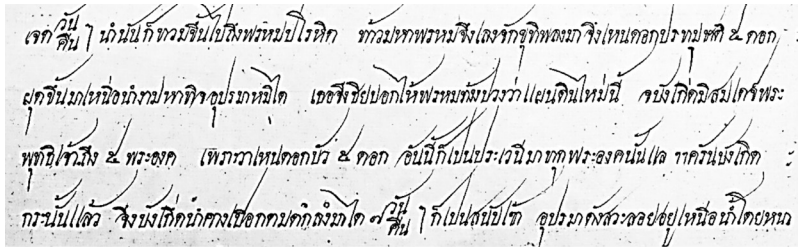 เจด วัน คืน ๅ นํานันก็ทวมขึ้นไปถึงพรหมปโรหิต ท้าวมหาพรหมจึงเลงจักขุทิพลงมา จึ่งเหนดอกปรทุมชาติ ๕ ดอก
ผุดขึ้นมาเหนือนํางามหา อุปรมาหมิได เธอจึงชีบอกไห้พรหมทังปวงว่าแผนดินไหม่นี้ จบังเกีดมีสมเดจ์พระ
พุทธิเจ้าถึง ๕ พระองค เพราะาเหนดอกบัว ๕ ดอก อันนี้ก็เปนประเวนีมาทุกพระองคนั้นแล ครันบังเกีด
กระนั้นแล้ว จึงบังเกีดนําคางเปือกตมตกลงมาได ๗ วัน คืน ๅ ก็เปนสนับไซ้ อุปรมาดังสวะลอยอยู่เหนือนําโดยหนา